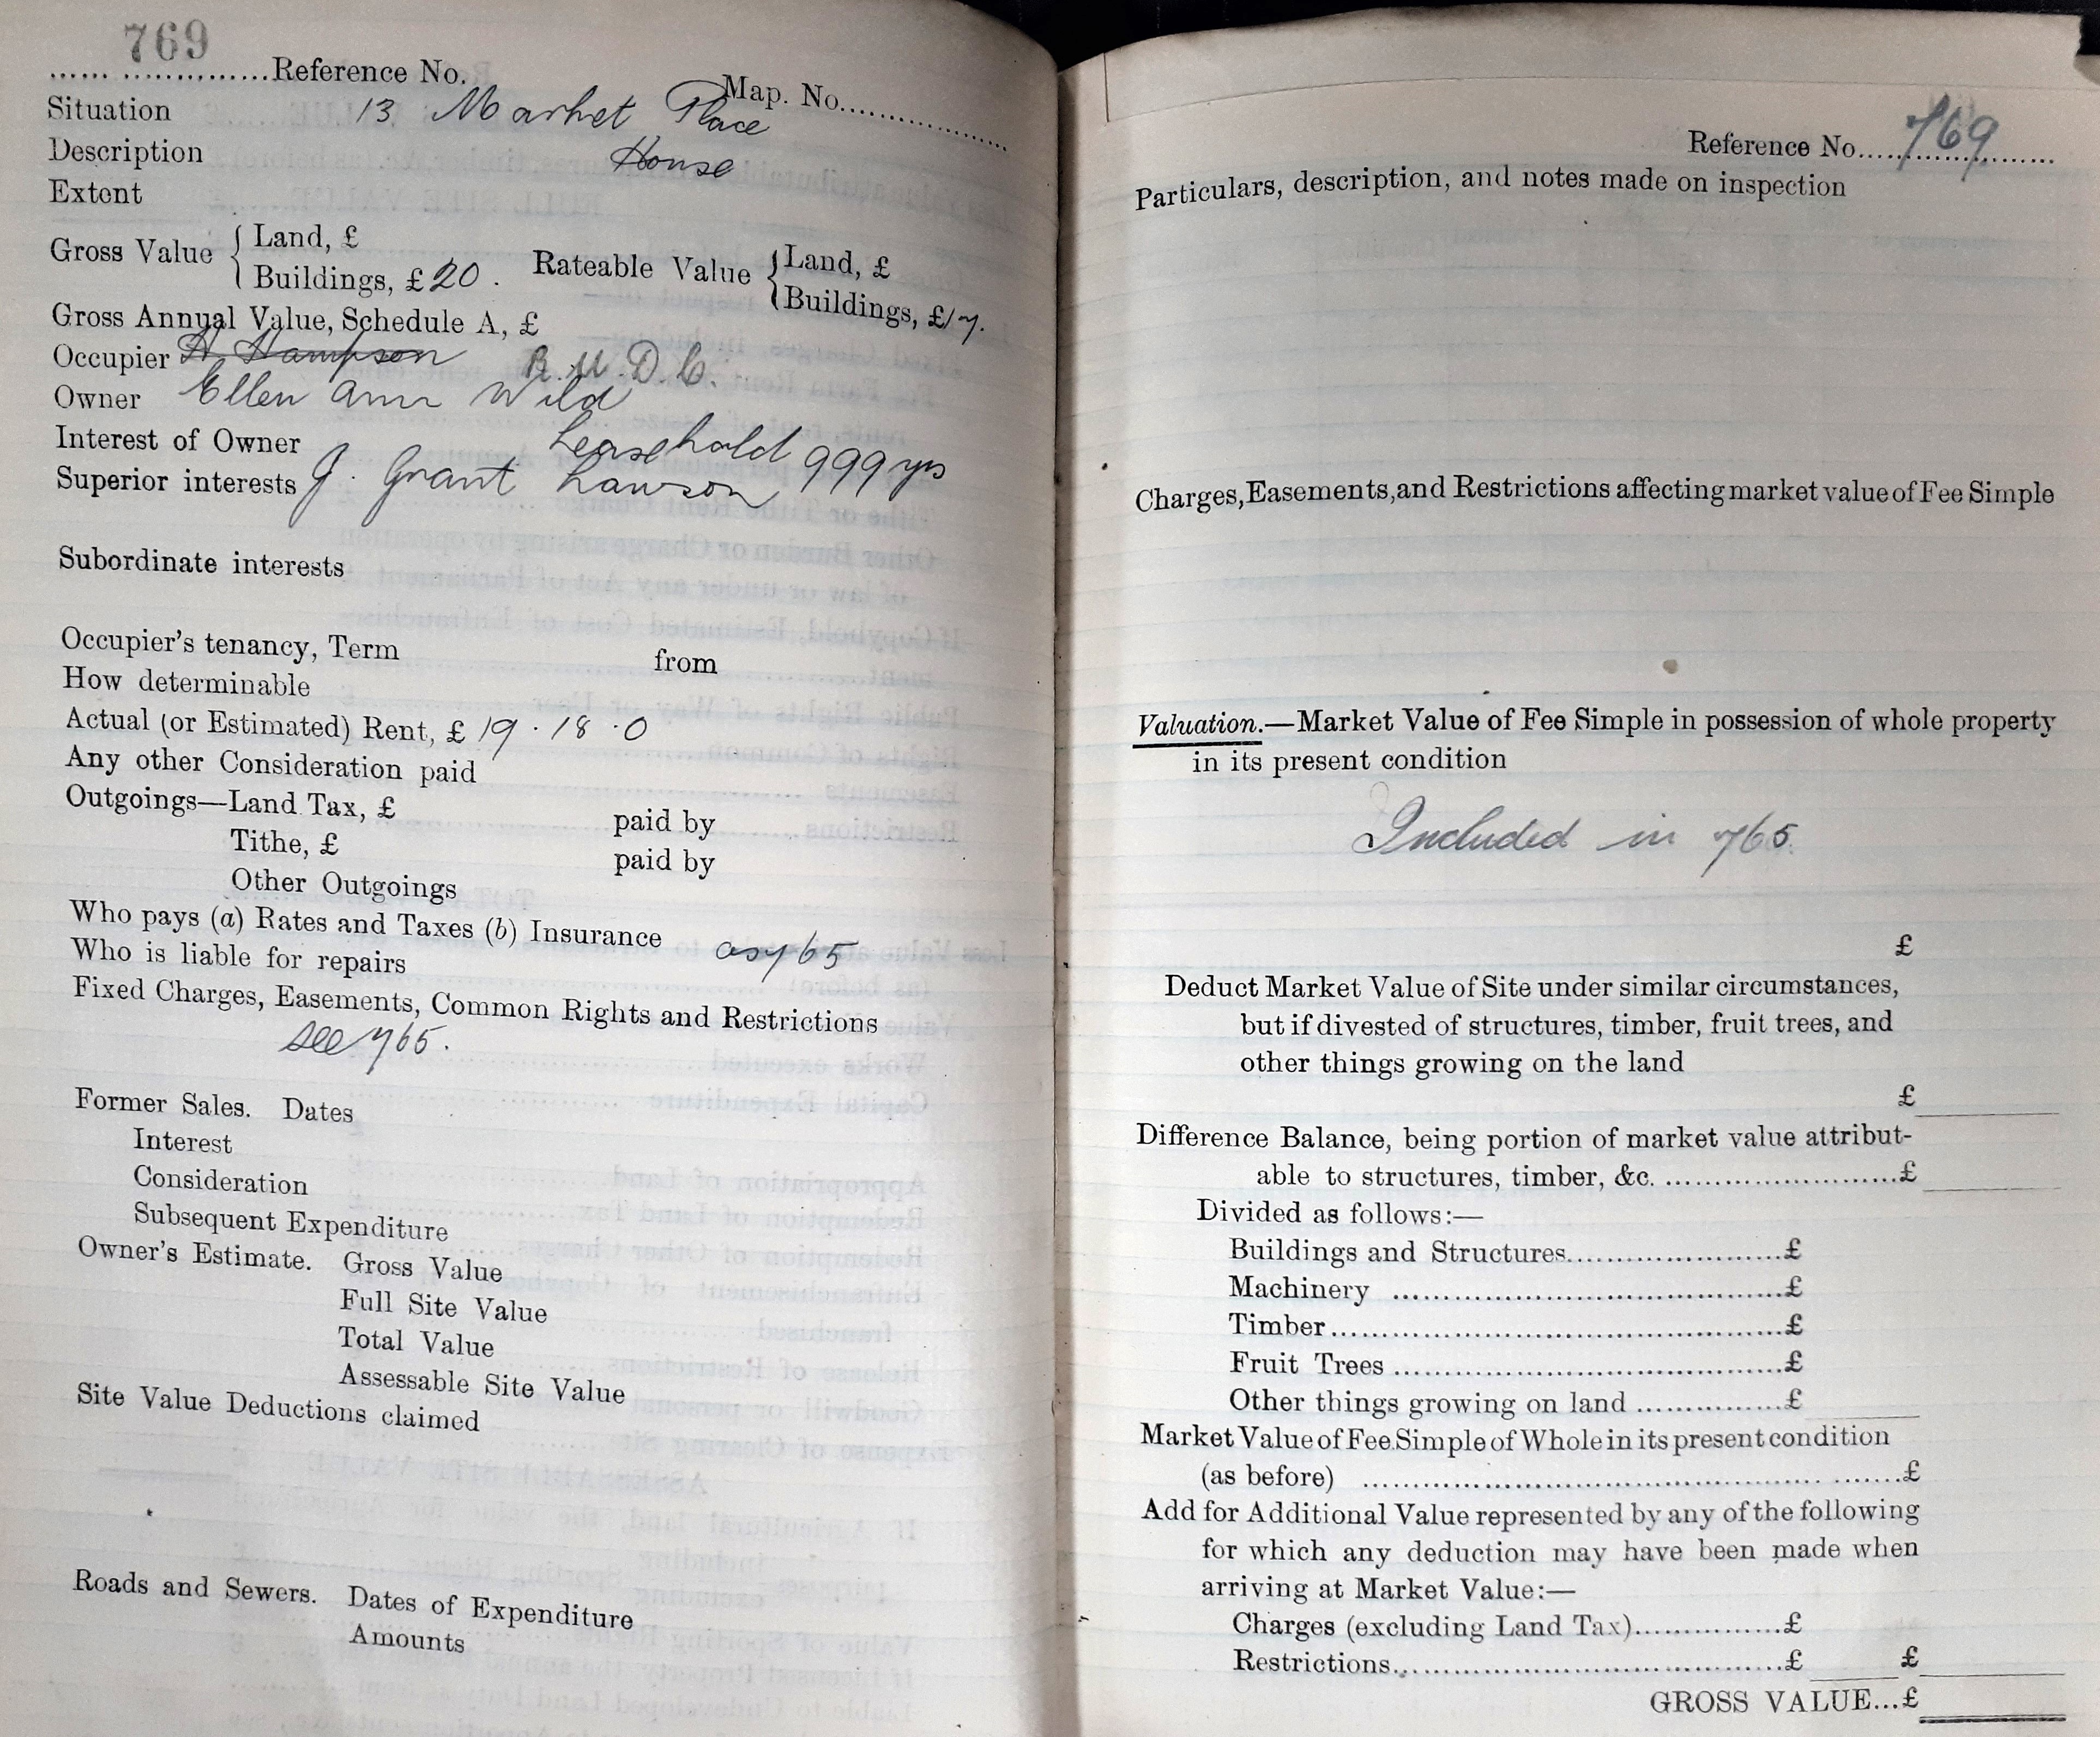 769
...... ..............Reference No.
Map. No..................
Situation 13 Market Place
Description House
Extent
Gross Value { Land, £
Buildings, £ 20 .
Rateable Value { Land, £
Buildings, £17.
Gross Annual Value, Schedule A, £
Occupier H. Hampson R. U. D. C.
Owner Ellen Ann Wild
Interest of Owner Leasehold 999 yrs
Superior interests J. Grant Lawson
Subordinate interests
Occupier's tenancy, Term from
How determinable
Actual (or Estimated) Rent, £ 19 . 18 . 0
Any other Consideration paid
Outgoings—Land Tax, £ paid by
Tithe, £ paid by
Other Outgoings
Who pays (a) Rates and Taxes (b) Insurance
Who is liable for repairs as 765
Fixed Charges, Easements, Common Rights and Restrictions
see 765.
Former Sales. Dates
Interest
Consideration
Subsequent Expenditure
Owner's Estimate. Gross Value
Full Site Value
Total Value
Assessable Site Value
Site Value Deductions claimed
Roads and Sewers. Dates of Expenditure
Amounts
Reference No....769......
Particulars, description, and notes made on inspection
Charges, Easements, and Restrictions affecting market value of Fee Simple
Valuation.—Market Value of Fee Simple in possession of whole property
in its present condition
Included in 765
£
Deduct Market Value of Site under similar circumstances,
but if divested of structures, timber, fruit trees, and
other things growing on the land
£
Difference Balance, being portion of market value attribut-
able to structures, timber, &c. ...........................£
Divided as follows:—
Buildings and Structures.........................£
Machinery .............................................£
Timber.....................................................£
Fruit Trees .............................................£
Other things growing on land ................£
Market Value of Fee Simple of Whole in its present condition
(as before) ..........................................................£
Add for Additional Value represented by any of the following
for which any deduction may have been made when
arriving at Market Value:—
Charges (excluding Land Tax)................£
Restrictions..............................................£ £
GROSS VALUE...£